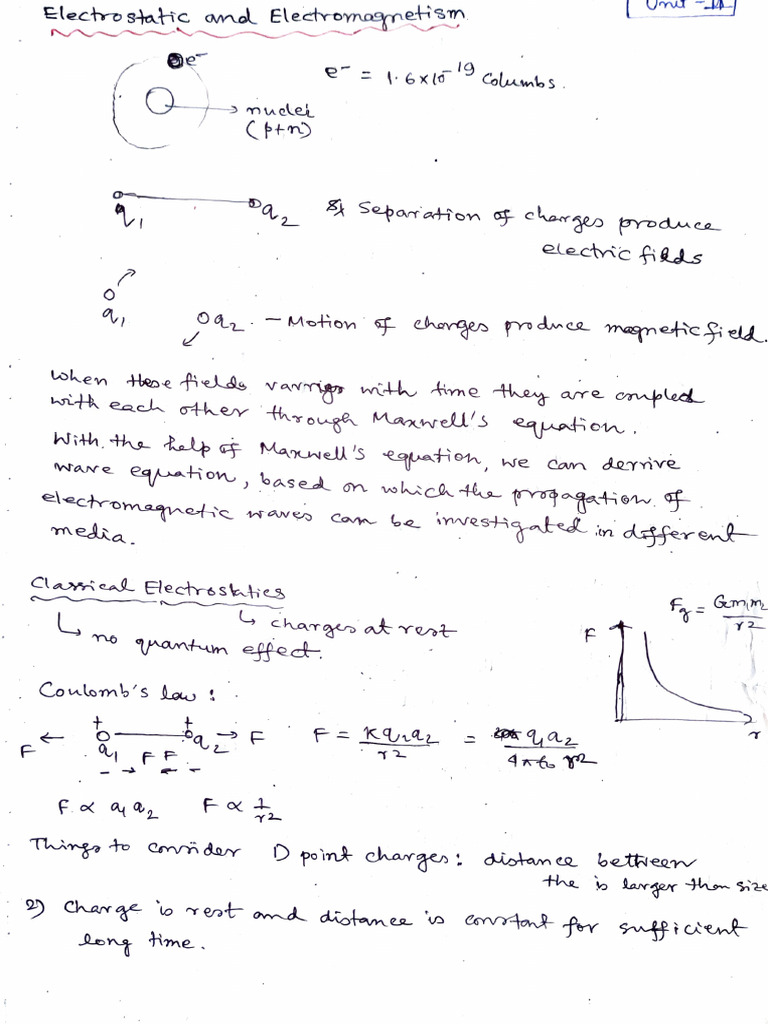 Electrostatic and Electromagnetism
Unit - II
e-
e- = 1.6×10-19 Columbs.
nuclei
(p+n)
q1 q2 Separation of charges produce
electric fields
q1
q2. - Motion of charges produce magnetic field.
When these fields varries with time they are coupled
with each other through Maxwell's equation.
With the help of Maxwell's equation, we can derrive
wave equation, based on which the propagation of
electromagnetic waves can be investigated in different
media.
Classical Electrostatics
↳ charges at rest
↳ no quantum effect.
Fg = Gm1m2/r2
F
r
Coulomb's law:
+ +
F ← q1 q2 → F F = Kq1q2/r2 = q1q2/4πε0 r2
F F
- → ← -
F ∝ q1 q2 F ∝ 1/r2
Things to consider 1) point charges: distance bettween
the is larger than size
2) Charge is rest and distance is constant for sufficient
long time.